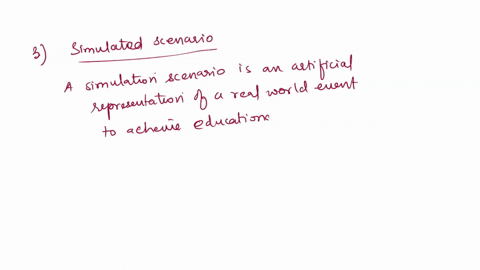 3) Simulated scenario
A simulation scenario is an artificial
representation of a real world event
to achieve education